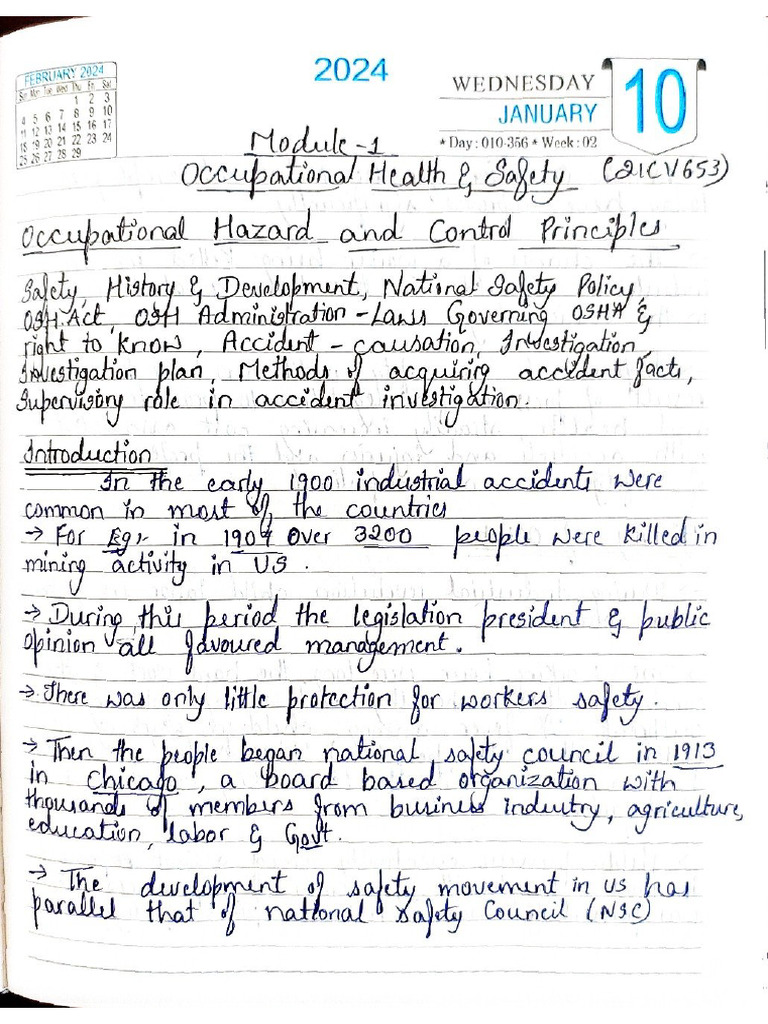 FEBRUARY 2024
Sun Mon Tue Wed Thu Fri Sat
1 2 3
4 5 6 7 8 9 10
11 12 13 14 15 16 17
18 19 20 21 22 23 24
25 26 27 28 29
2024
WEDNESDAY
JANUARY
10
* Day : 010-356 * Week : 02
Module-1
Occupational Health & Safety (21CV653)
Occupational Hazard and Control Principles
Safety, History & Development, National Safety Policy,
OSH Act, OSH Administration - Laws Governing OSHA &
right to know, Accident - causation, Investigation,
Investigation plan, Methods of acquiring accident facts,
Supervisory role in accident investigation.
Introduction
In the early 1900 industrial accidents were
common in most of the countries
→ For Eg:- in 1907 over 3200 people were killed in
mining activity in U.S.
→ During this period the legislation president & public
opinion all favoured management.
→ There was only little protection for workers safety.
→ Then the people began national safety council in 1913
in Chicago, a board based organization with
thousands of members from business industry, agriculture,
education, labor & Govt.
→ The development of safety movement in US has
parallel that of national Safety Council (NSC)